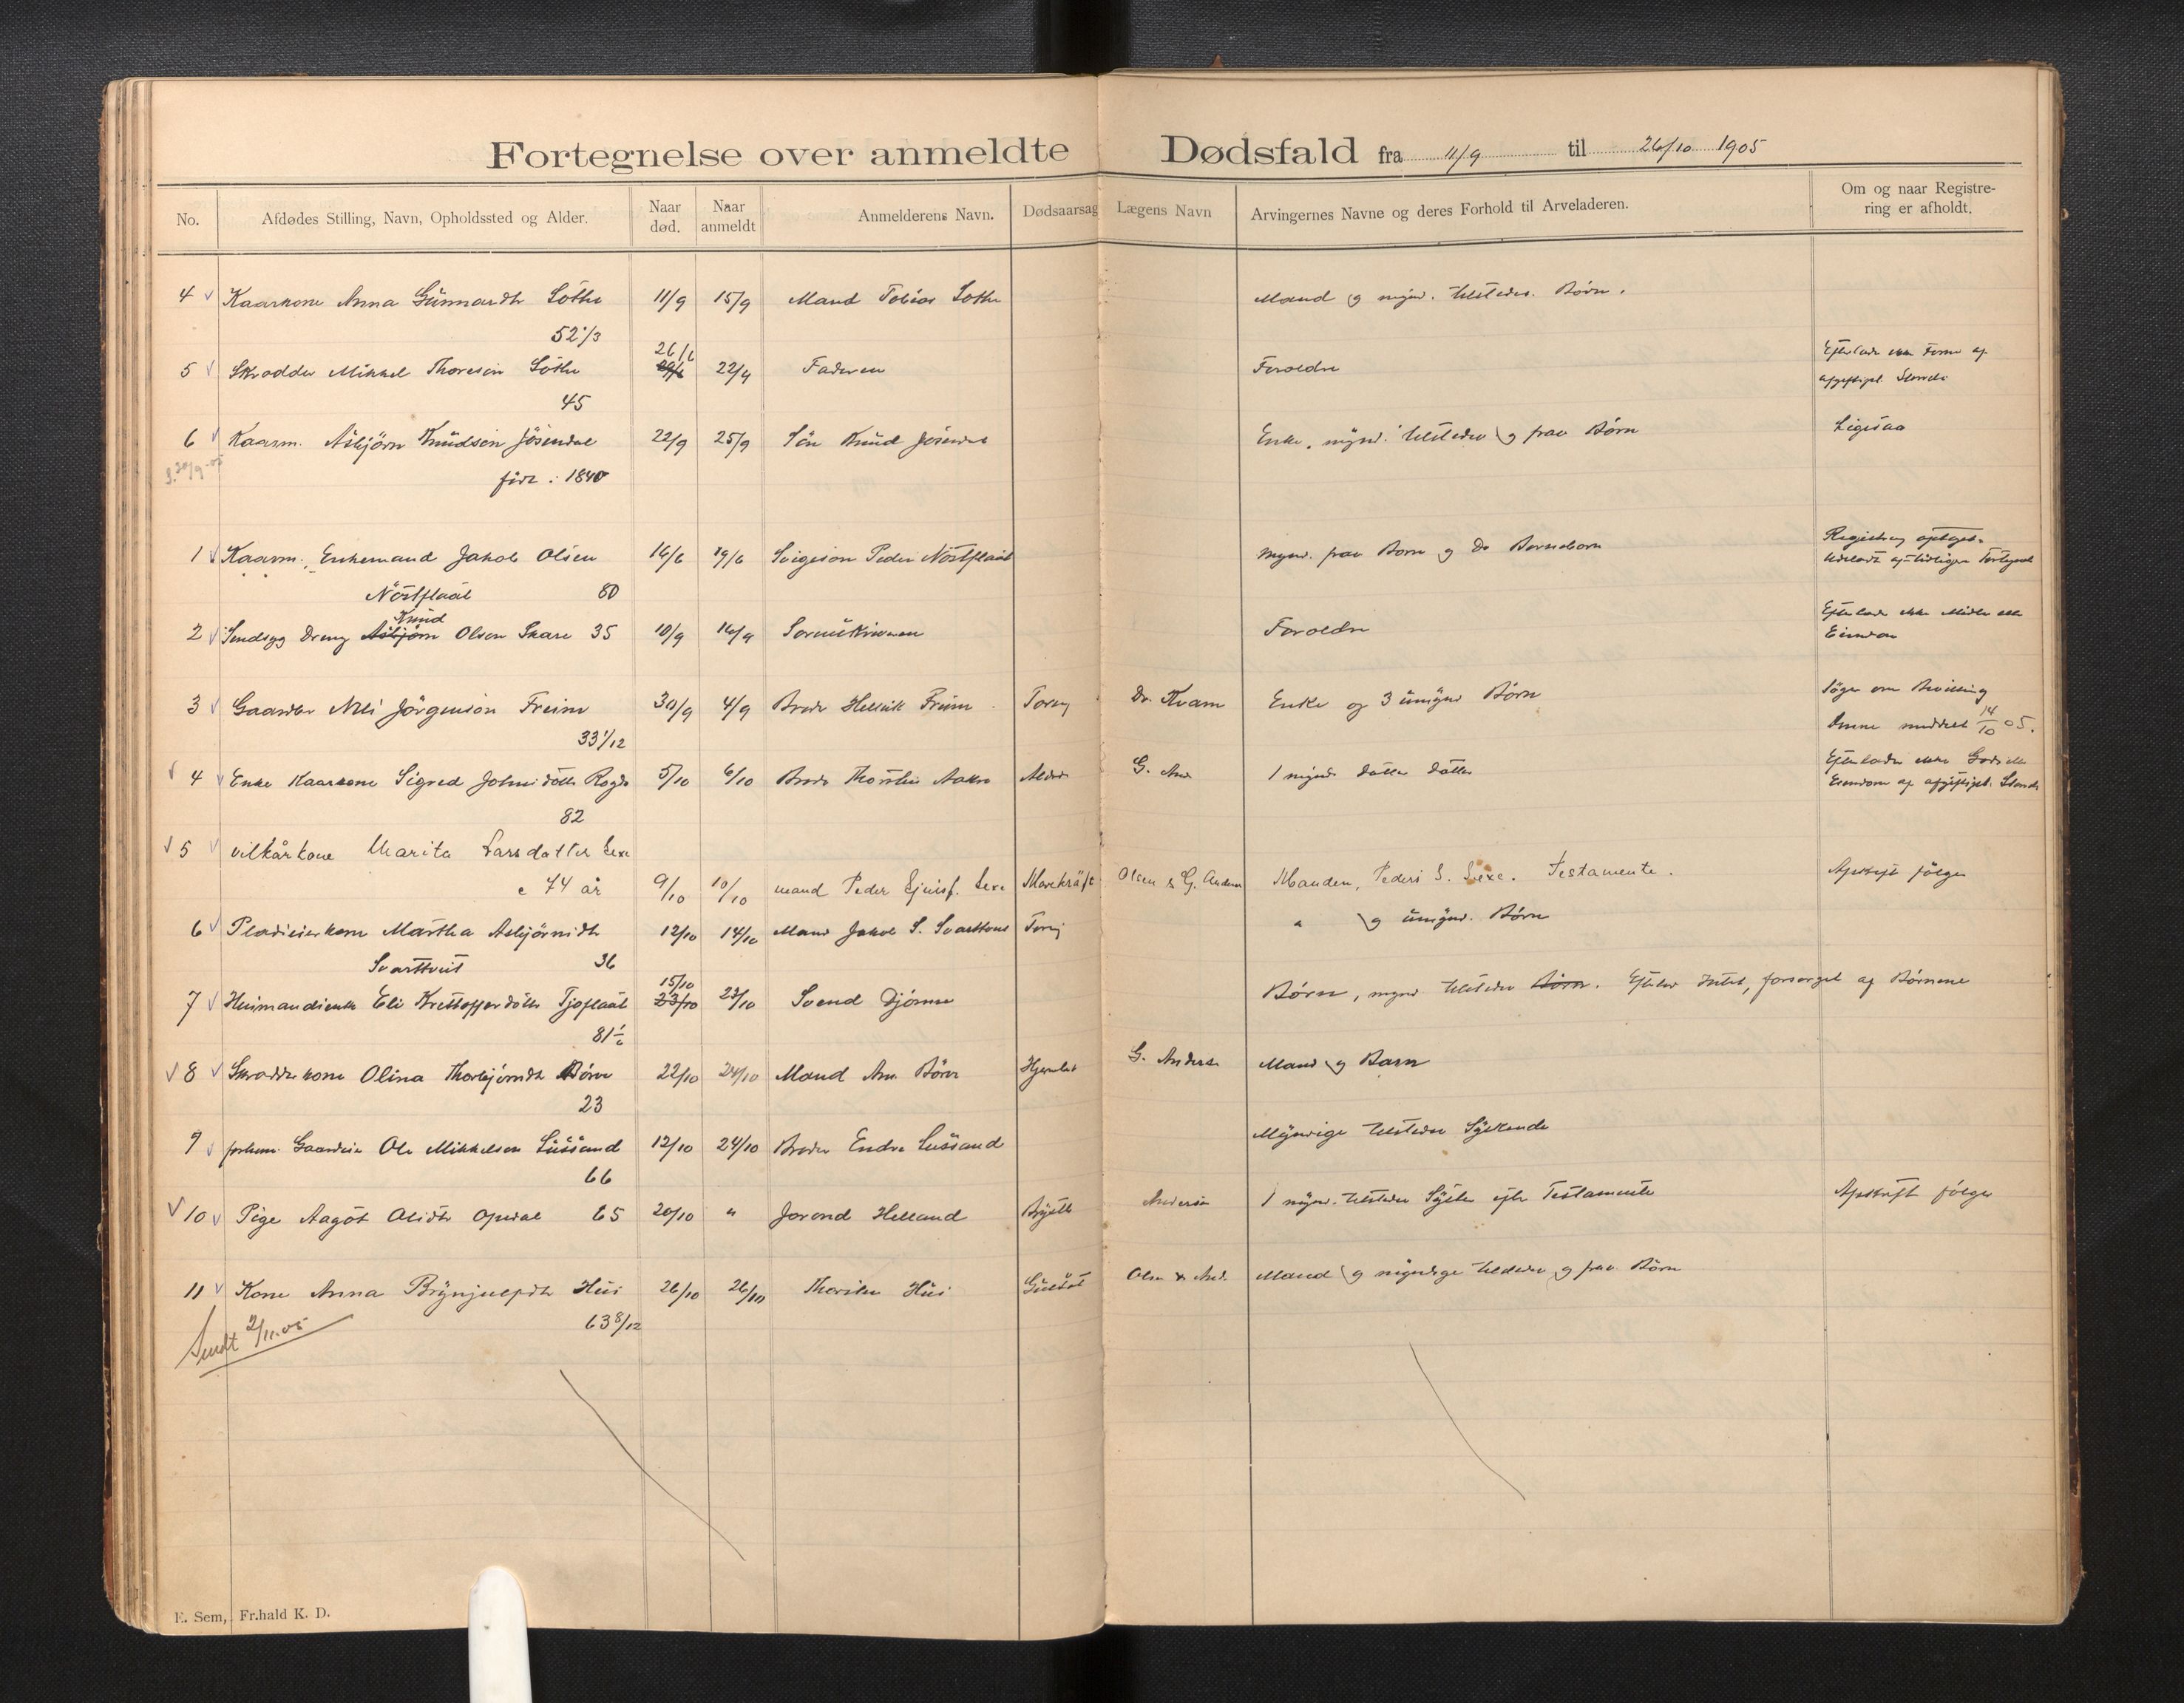 Fortegnelse over anmeldte Dødsfald fra 11/9 til 26/10 1905
No. Afdødes Stilling, Navn, Opholdssted og Alder. Naar død. Naar anmeldt Anmelderens Navn. Dødsaarsag Lægens Navn Arvingernes Navne og deres Forhold til Arveladeren. Om og naar Registrering er afholdt.
4 Kaarkone Anna Gunnardtr Lothe 11/9 15/9 Mand Tobias Lothe Mand og mynd. tilstedev. Børn.
52 1/3
26/6
5 Skrædder Mikkel Thoresen Lothe 22/9 Faderen Forældre Efterlader ikke
afgiftspl.
45
6 Kaarm. Asbjørn Knudsen Jøsendal 22/9 25/9 Søn Knud Jøsendal Enke, mynd. tilstedev og frav Børn Ligesaa
født : 1840
1 Kaarm. Enkemand Jakob Olsen 16/6 19/6 Svigersøn Peder Nøstflaat mynd. frav Børn og Do Børnebørn
Nøstflaat 80
Knud
2 Sindsyg Dreng Asbjørn Olsen Skare 35 10/9 16/9 Forældre Efterlader ikke Midler eller
Eiendom
3 Gaardbr Nils Jørgensøn Freim 30/9 4/9 Broder Freim Tæring Dr. Kvam Enke og 3 umynd Børn Søger om Bevilling
meddelt 14/10 05.
33 1/12
4 Enke Kaarkone Sigred Johnsdotter 5/10 6/10 Broder Thorstein Aakre Alderd G. And 1 mynd. Datter Datter Efterlader ikke Gods eller
Eiendom af afgiftspl.
82
5 vilkårkone Marita Larsdatter Sexe
c 74 år 9/10 10/10 mand Peder Sexe Mavekræft Olsen & G. Andersn Manden, Peder S. Sexe. Testamente. Afskrift følger
6 Pladseierkone Martha Asbjørnsdtr 12/10 14/10 Mand Jakob S. Tæring " og umynd. Børn
Svarttveit 36
15/10
7 Husmandsenke Eli Kristofferdotter Tjoflaat 23/10 23/10 Svend Djønne Børn, mynd tilstedev Børn. Efterlod Intet, forsørget af Børnene
81 1/2
8 Skrædderkone Olina Thorbjørndtr Børve 22/10 24/10 Mand Am. Børve G. Anders Mand og Barn
23
9 forhenv. Gaardeier Ole Mikkelsen Lussand 12/10 24/10 Broder Endre Lussand Myndige tilstedev Sydskende
66
10 Pige Aagot Olsdtr Opedal 65 20/10 " Jorond Helland Andersn 1 mynd. tilstedev Syster efter Testamente Afskrift følger
11 Kone Anna Brynjulfsdtr Hus 26/10 26/10 Thorstein Hus Gulsot Olsen & And. Mand og myndige tilstedev og frav. Børn
63 8/12
Sendt 2/11.05
E. Sem, Fr.hald K. D.